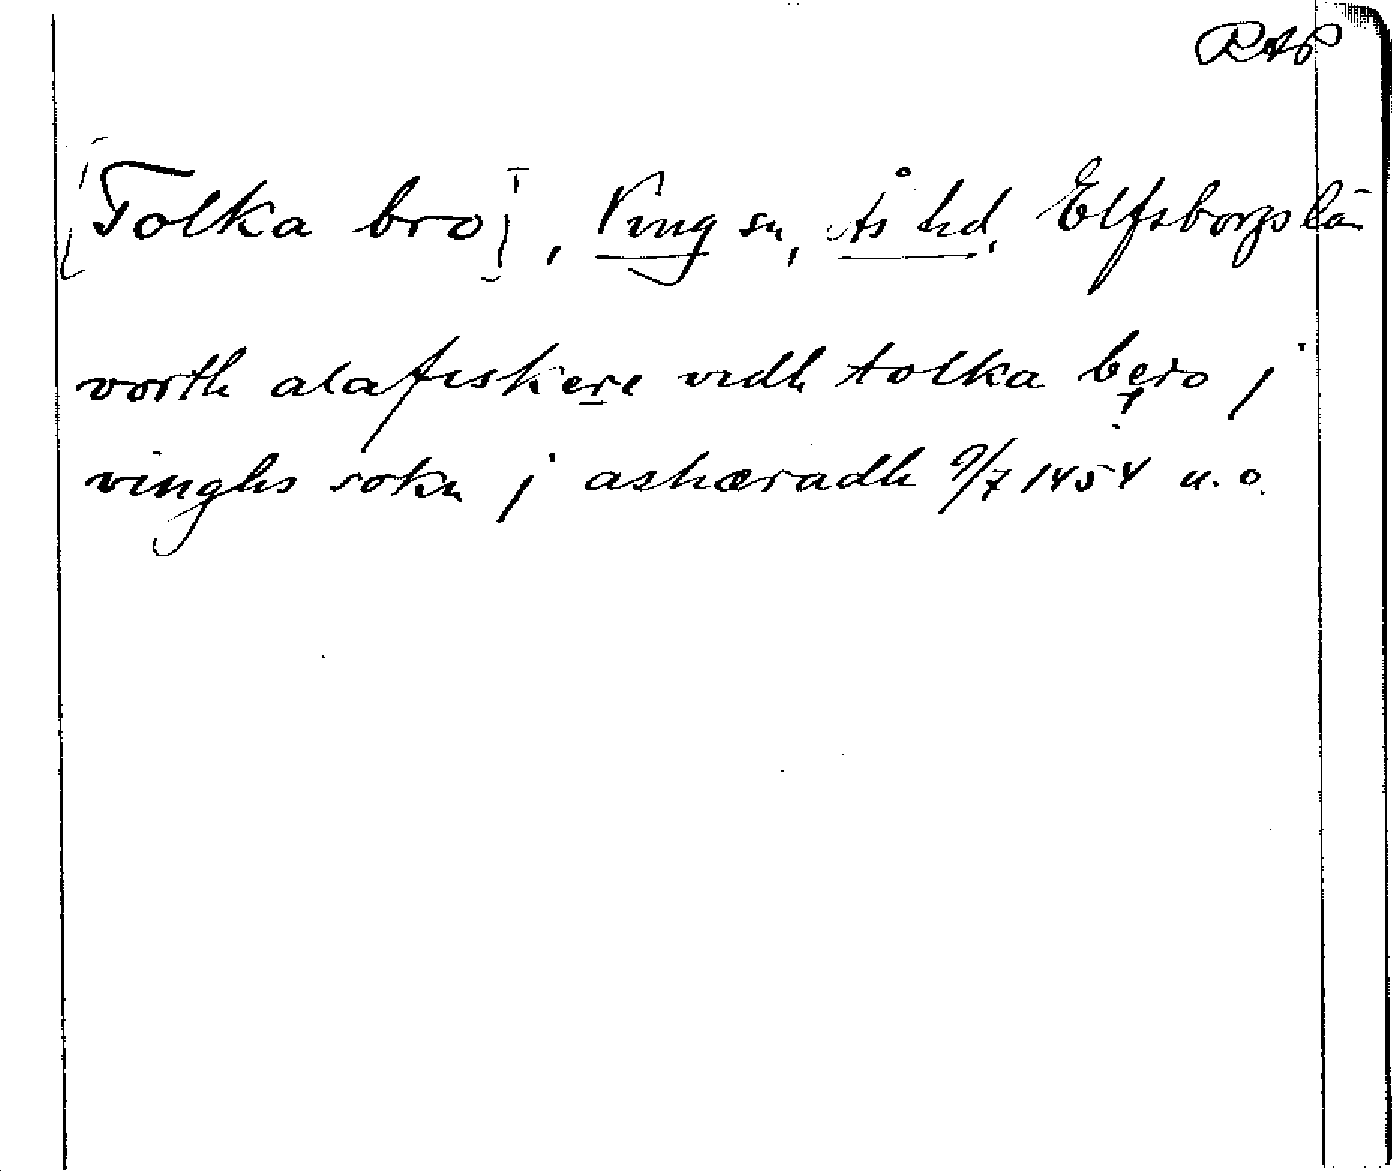 RAP
[Tolka bro], Ving sn, Ås hd, Elfsborgs län
worth alafiskere vidh tolka bero j
vinghs sokn j ashæradh 9/7 1454 u. o.